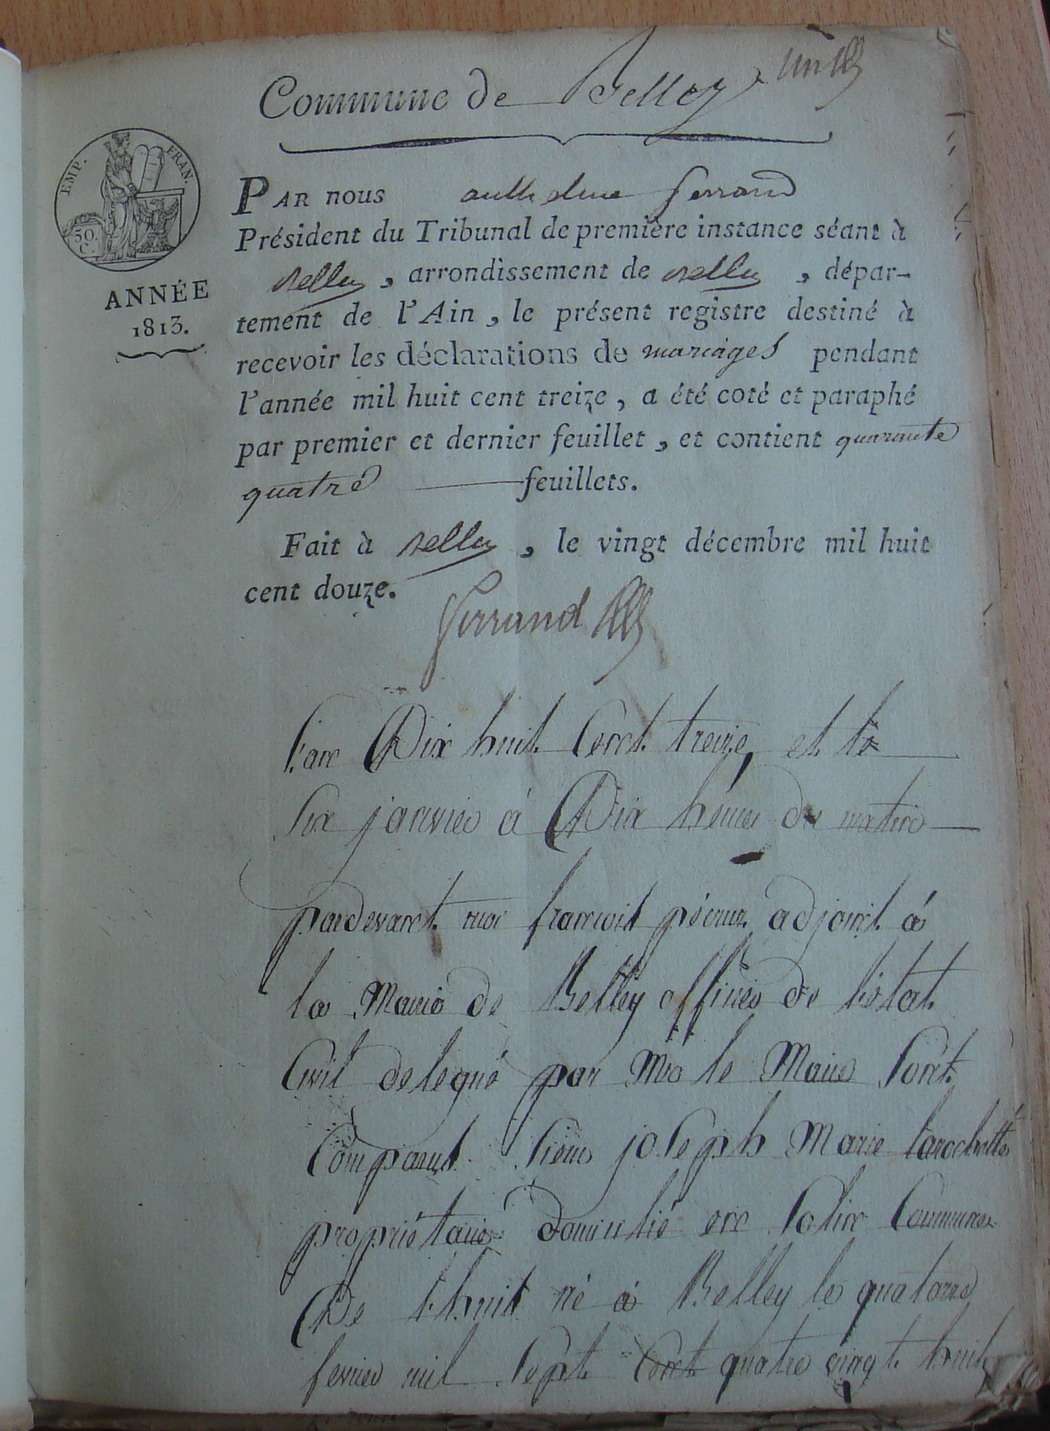 Commune de Belley
EMP. FRAN.
50
C.
ANNÉE
1813.
PAR nous Ferrand
Président du Tribunal de première instance séant à
Belley, arrondissement de Belley, dépar-
tement de l'Ain, le présent registre destiné à
recevoir les déclarations de mariages pendant
l'année mil huit cent treize, a été coté et paraphé
par premier et dernier feuillet, et contient quarante
quatre feuillets.
Fait à Belley, le vingt décembre mil huit
cent douze.
Ferrand
L'an Dix huit Cent treize, et le
Six janvier à Dix heures du matin
pardevant nous françois adjoint à
la Mairie de Belley officier de l'état
Civil delegué par Mr le Maire Sont
Comparut Sieur joseph Marie Larochette
propriétaire domicilié en Commune
De né à Belley le quatorze
fevrier mil Sept Cent quatre vingt huit